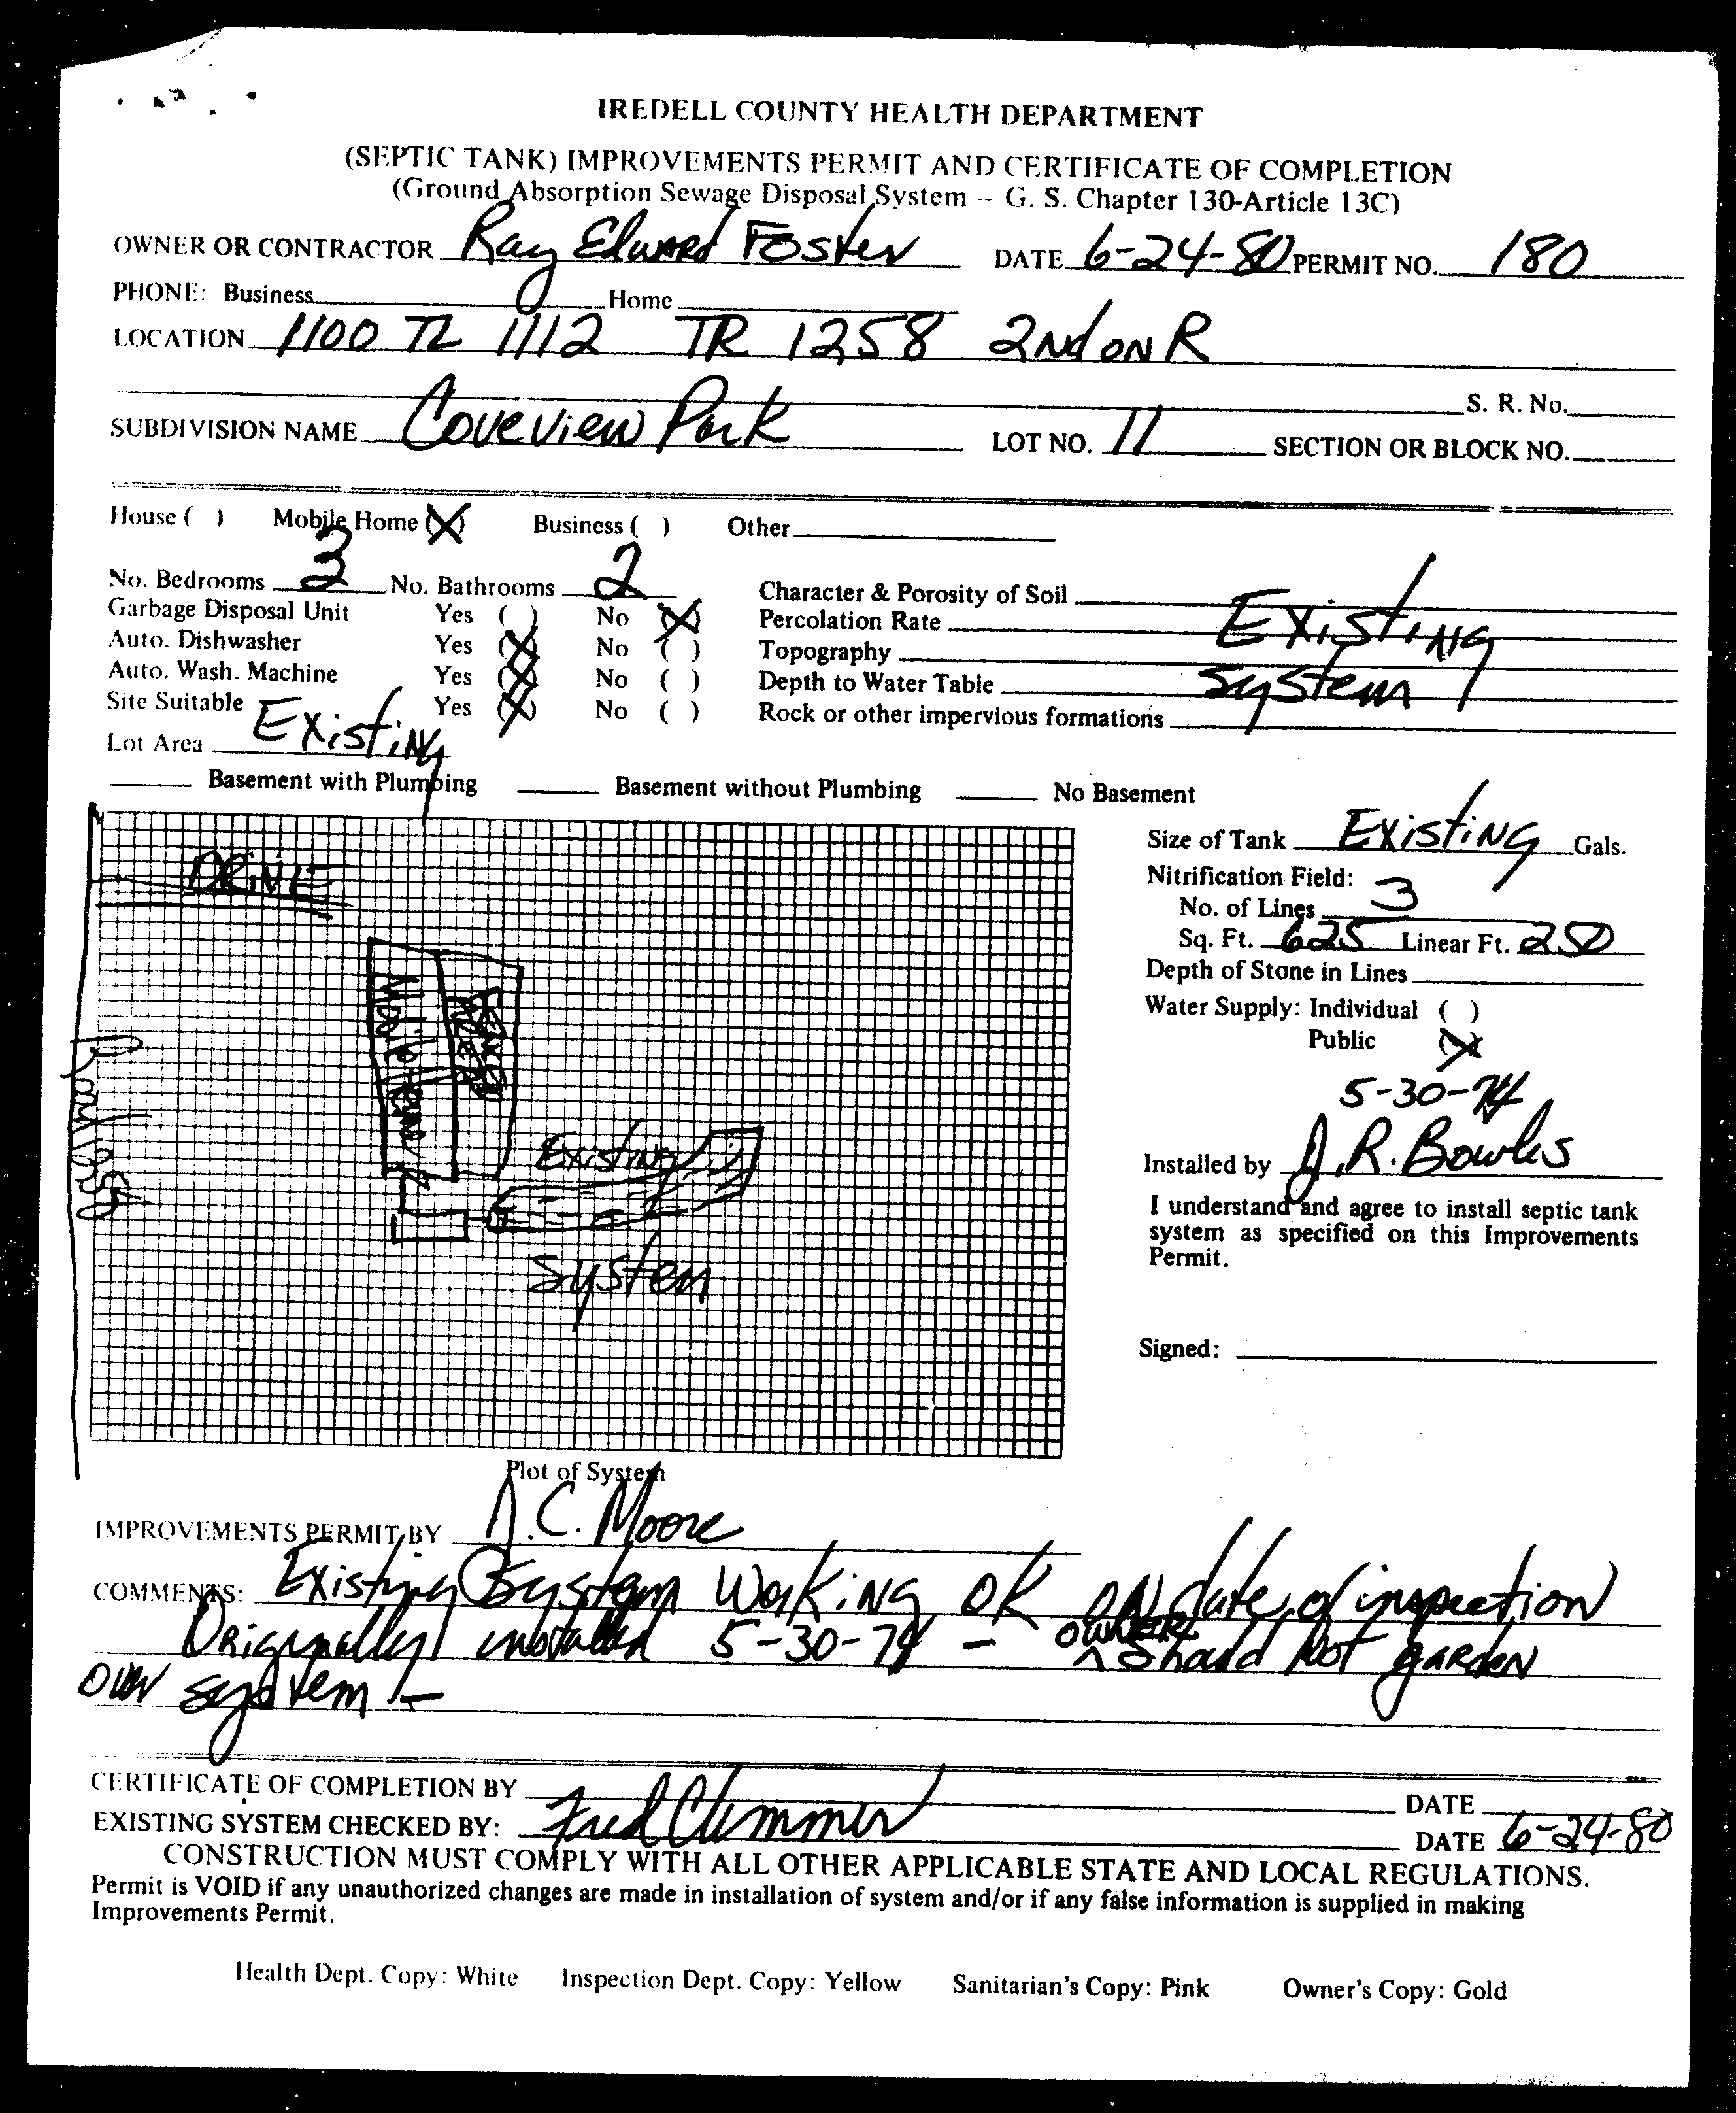 IREDELL COUNTY HEALTH DEPARTMENT
(SEPTIC TANK) IMPROVEMENTS PERMIT AND CERTIFICATE OF COMPLETION
(Ground Absorption Sewage Disposal System -- G. S. Chapter 130-Article 13C)
OWNER OR CONTRACTOR Ray Edward Foster DATE 6-24-80 PERMIT NO. 180
PHONE: Business Home
LOCATION 1100 TL 1112 TR 1258 2nd on R
S. R. No.
SUBDIVISION NAME Coveview Park LOT NO. 11 SECTION OR BLOCK NO.
House ( ) Mobile Home (X) Business ( ) Other
No. Bedrooms 3 No. Bathrooms 2 Character & Porosity of Soil
Garbage Disposal Unit Yes ( ) No (X) Percolation Rate Existing
Auto. Dishwasher Yes (X) No ( ) Topography
Auto. Wash. Machine Yes (X) No ( ) Depth to Water Table System
Site Suitable Yes (X) No ( ) Rock or other impervious formations
Lot Area Existing
Basement with Plumbing Basement without Plumbing No Basement
Size of Tank Existing Gals.
Nitrification Field:
No. of Lines 3
Sq. Ft. 625 Linear Ft. 250
Depth of Stone in Lines
Water Supply: Individual ( )
Public (X)
5-30-74
Installed by J. R. Bowles
I understand and agree to install septic tank
system as specified on this Improvements
Permit.
Signed:
DRIVE
Mobile Home
Existing
System
Plot of System
IMPROVEMENTS PERMIT BY C. Moore
COMMENTS: Existing System Working OK on date of inspection
Originally installed 5-30-74 - owner should Not garden
over system -
CERTIFICATE OF COMPLETION BY DATE
EXISTING SYSTEM CHECKED BY: Fred Clemmer DATE 6-24-80
CONSTRUCTION MUST COMPLY WITH ALL OTHER APPLICABLE STATE AND LOCAL REGULATIONS.
Permit is VOID if any unauthorized changes are made in installation of system and/or if any false information is supplied in making
Improvements Permit.
Health Dept. Copy: White Inspection Dept. Copy: Yellow Sanitarian's Copy: Pink Owner's Copy: Gold